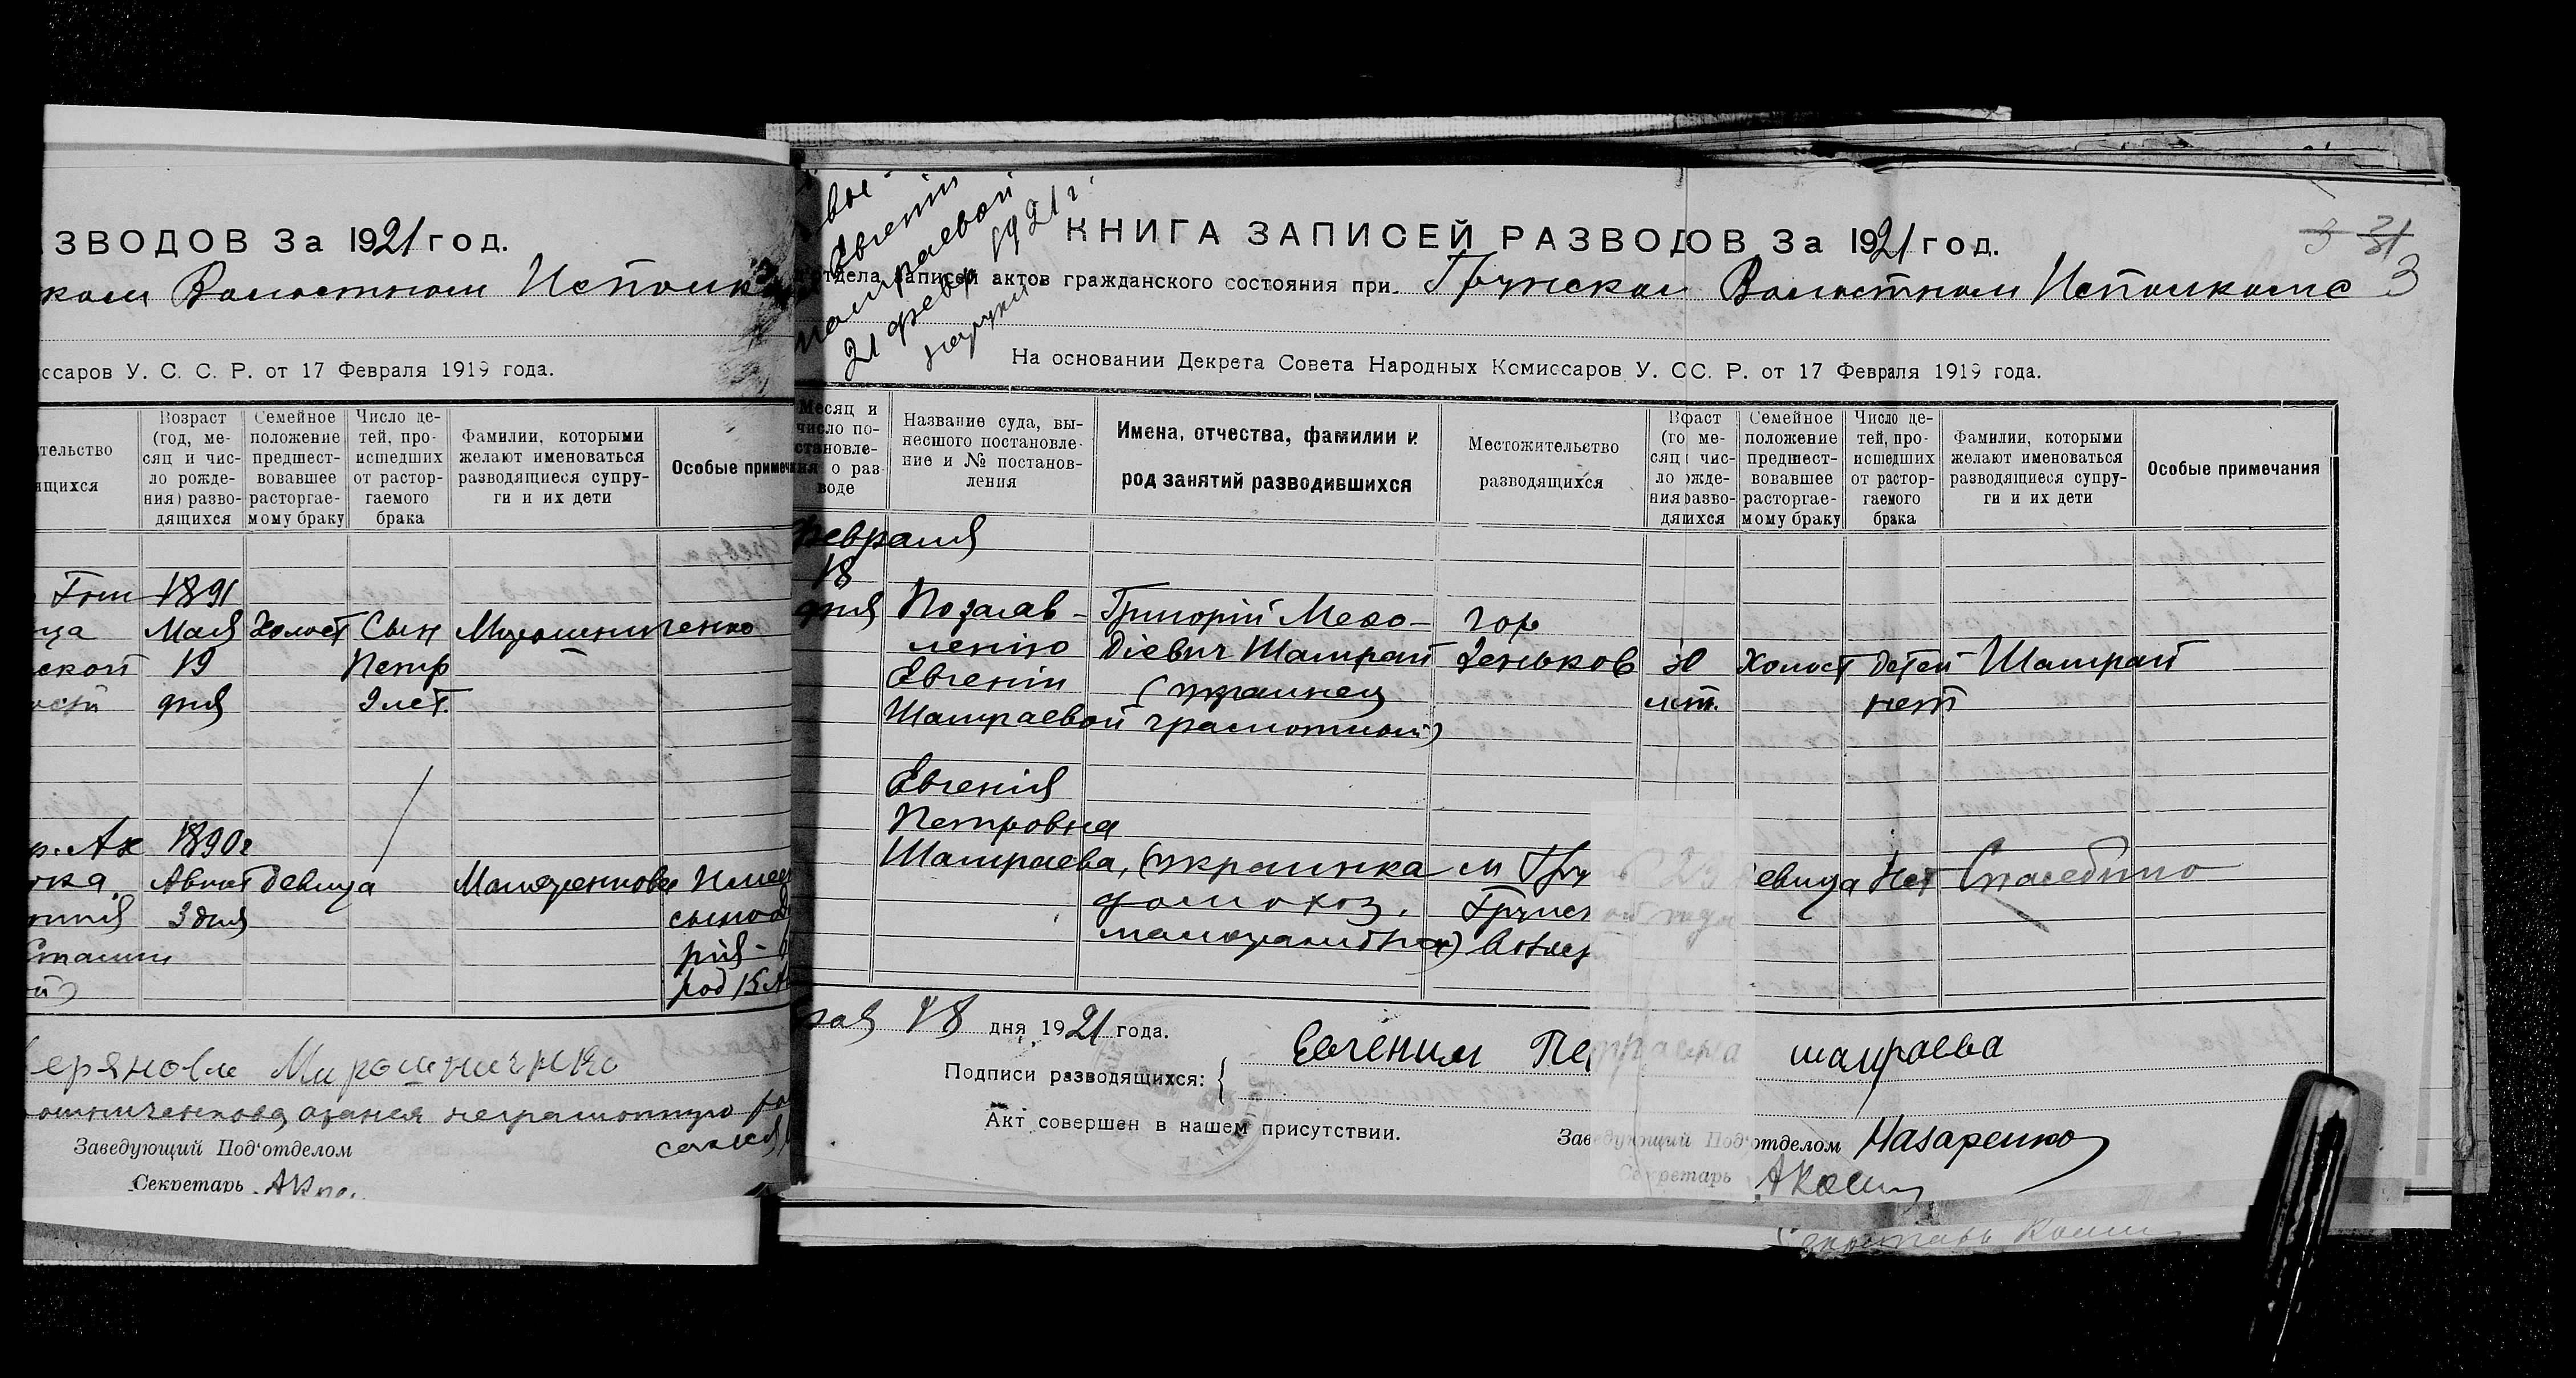 ЗВОДОВ За 1921 год.
ком Волостном Исполк
ссаров У. С. С. Р. от 17 Февраля 1919 года.
тельство
ящихся
Возраст
(год, ме-
сяц и чис-
ло рожде-
ния) разво-
дящихся
Семейное
положение
предшест-
вовавшее
расторгае-
мому браку
Число де-
тей, про-
исшедших
от растор-
гаемого
брака
Фамилии, которыми
желают именоваться
разводящиеся супру-
ги и их дети
Особые примеча
1891
Мая Холост Сын Мирошниченко
ской 19 Петр
дня 9 лет.
1890г
Август девица
3 дня
род 15
Мирошниченко
неграмотную
Заведующий Под'отделом
Секретарь
Евгении
Шамраевой
21 февр 1921 г
КНИГА ЗАПИСЕЙ РАЗВОДОВ За 1921 год.
3 31
отдела записей актов гражданского состояния при Грунском Волостном Исполкоме 3
На основании Декрета Совета Народных Комиссаров У. СС. Р. от 17 Февраля 1919 года.
Месяц и
число по-
становле-
ния о раз-
воде
Название суда, вы-
несшого постановле-
ние и № постанов-
ления
Имена, отчества, фамилии и
род занятий разводившихся
Местожительство
разводящихся
Вфаст
(го ме-
сяц чис-
ло ожде-
ния разво-
дяихся
Семейное
положение
предшест-
вовавшее
расторгае-
мому браку
Число де-
тей, про-
исшедших
от растор-
гаемого
брака
Фамилии, которыми
желают именоваться
разводящиеся супру-
ги и их дети
Особые примечания
февраля
18
дня По заяв- Григорій Мефо- гор
лению діевич Шамрай Зеньков 30 Холост детей Шамрай
Евгении (украинец лет. нет
Шамраевой грамотный)
Евгенія
Петровна
Шамраева, (украинка м Гру 23 евица Нет
домохоз.
малограмотная)
18 дня 1921 года.
Подписи разводящихся: Евгения Петравна шамраева
Акт совершен в нашем присутствии.
Заведующий Под'отделом Назаренко
Секретарь